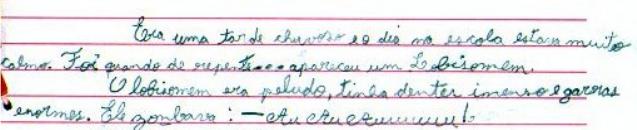 Era uma tarde chuvosa e o dia na escola estava muito
calmo. Foi quando de repente... apareceu um Lobisomem.
O lobisomem era peludo, tinha dentes imenso e garras
enormes. Ele zombava : — Au Au Auuuuuu!